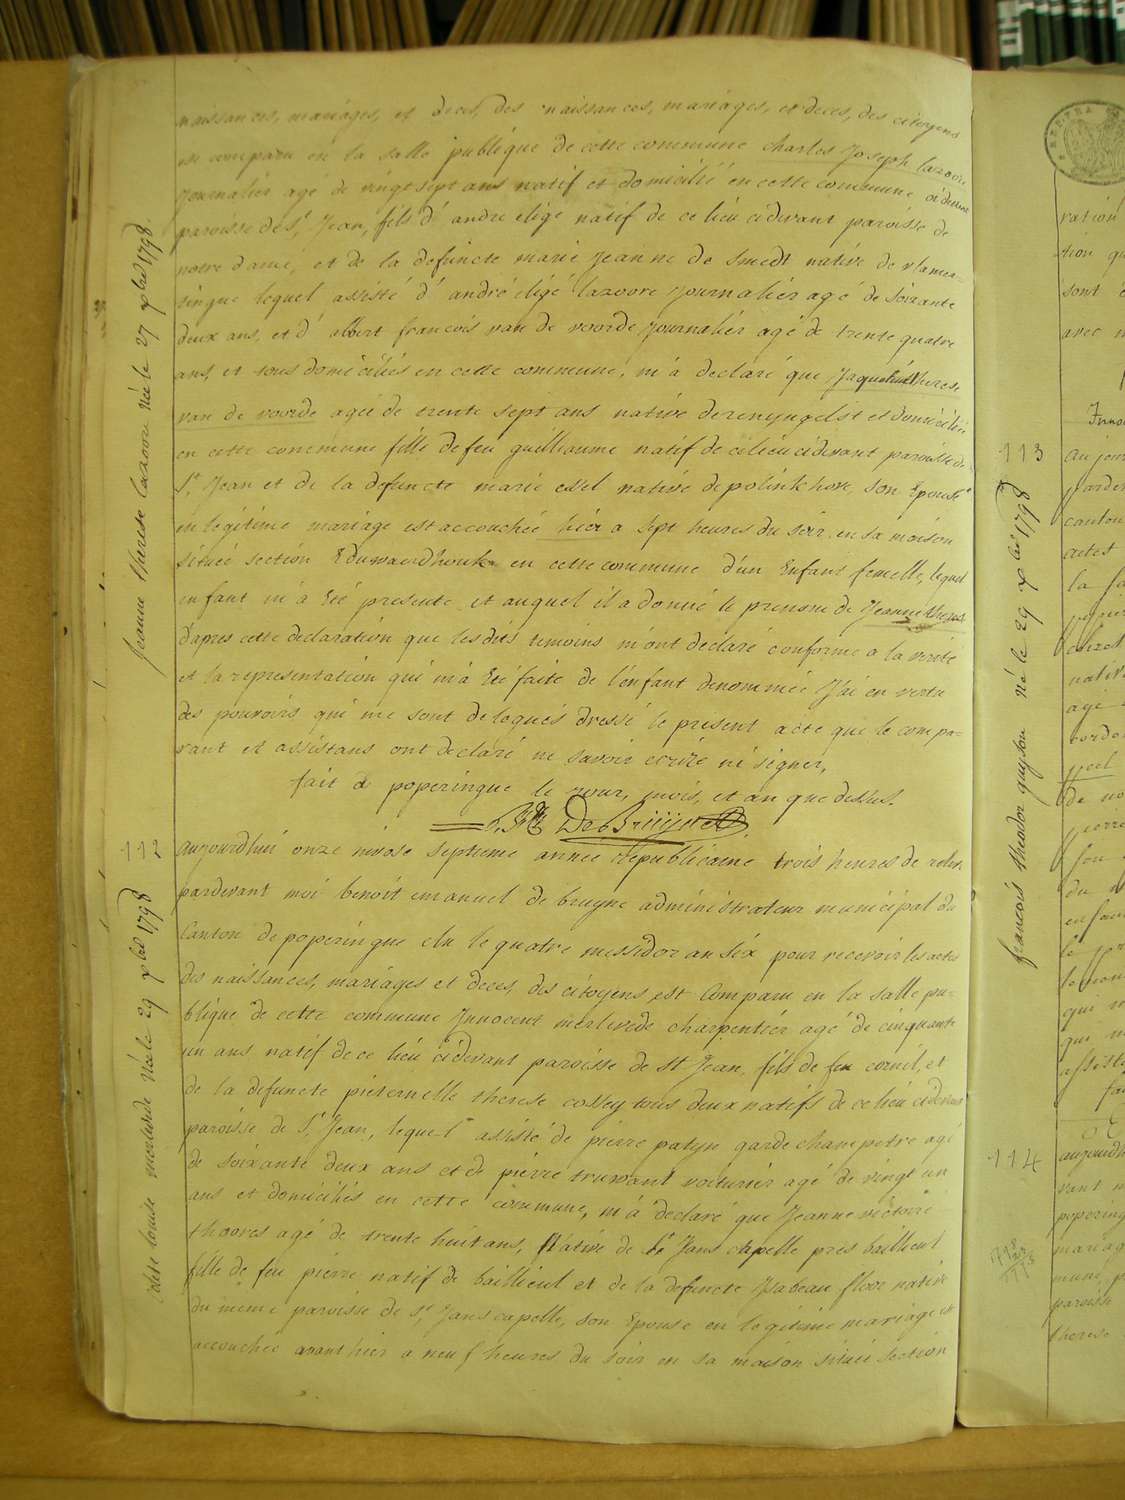 naissances, mariages, et deces, des naissances, mariages, et deces, des citoyens
est comparu en la salle publique de cette commune charles Joseph lazoore
Journalier agé de vingt sept ans natif et domicilié en cette commune, cidevant
paroisse de St. Jean, fils d'andre eligé natif de ce lieu cidevant paroisse de
notre dame, et de la defuncte marie Jeanne de smedt native de vlamer=
tingue lequel assisté d'andré eligé lazoore Journalier agé de soixante
deux ans, et d'albert francois van de voorde Journalier agé de trente quatre
ans, et tous domiciliés en cette commune, m'à declaré que Jaqueline therese
van de voorde agée de trente sept ans native derenyngelst et domiciliée
en cette commune fille de feu guilliaume natif de ce lieu cidevant paroisse de
St. Jean et de la defuncte marie essel native de polinkhove, son Epouse
en legitime mariage est accouchée hier a sept heures du soir en sa maison
située section Eduwaerdhouk en cette commune d'un Enfant femelle, lequel
enfant m'à Eté presenté et auquel il a donné le prenom de Jeanne therese
d'apres cette declaration que les dits temoins m'ont declaré conforme a la verité
et la representation qui m'à Eté faite de l'enfant denommée J'ai en vertu
des pouvoirs qui me sont delegués dressé le present acte que le compa=
rant et assistans ont declaré ne savoir ecrire ni signer,
fait à poperingue le jour, mois, et an que dessus.
De Bruyne
Jeanne therese lazoore née le 27 xbre 1798.
112
aujourdhui onze nivose septieme année republicaine trois heures de relevé
pardevant moi benoit emanuel de bruyne administrateur municipal du
Canton de poperingue elu le quatre messidor an six pour recevoir les actes
des naissances, mariages et deces, des citoyens est Comparu en la salle pu=
blique de cette commune Innocent merlevede charpentier agé de cinquante
un ans natif de ce lieu cidevant paroisse de st Jean, fils de feu cornil, et
de la defuncte pieternelle therese cossey tous deux natifs de ce lieu cidevant
paroisse de St. Jean, lequel assisté de pierre patyn garde champetre agé
de soixante deux ans et de pierre truwant voiturier agé de vingt un
ans et domiciliés en cette commune, m'à declaré que Jeanne victoire
thoores agé de trente huit ans, Native de St Jans capelle pres bailleul
fille de feu pierre natif de baillieul et de la defuncte Isabeau floor native
du meme paroisse de St. Jans capelle, son Epouse en legitime mariage est
accouchée avant hier a neuf heures du soir en sa maison située section
louise merlevede née le 29 xbre 1798
113
francois theodor quyson né le 29 xbre 1798
114
ration
sont
avec
aujour
canton
actes
la
agé
de
du
enfan
qui
qui
fai
aujourdh
vant
popering
mariag
paroiss
therese